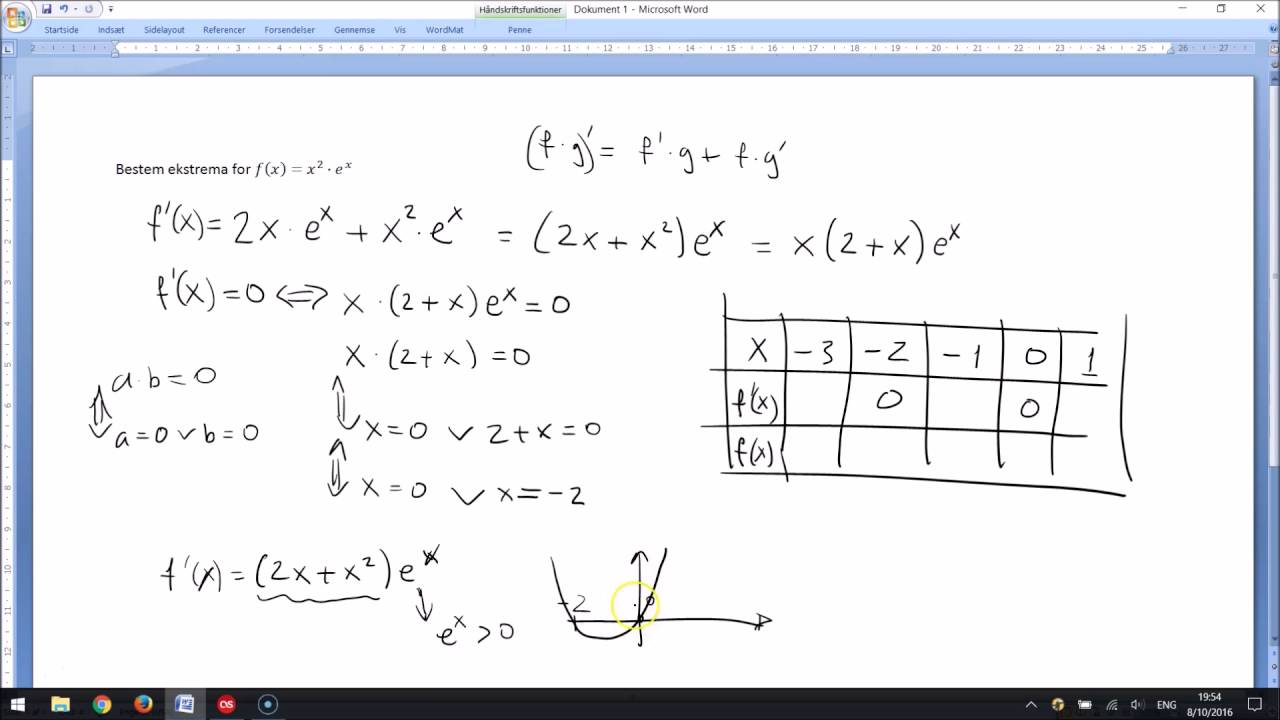 Håndskriftsfunktioner Dokument 1 - Microsoft Word
Startside Indsæt Sidelayout Referencer Forsendelser Gennemse Vis WordMat Penne
2 1 1 2 3 4 5 6 7 8 9 10 11 12 13 14 15 16 17 18 19 20 21 22 23 24 25 26 27
(f·g)' = f'·g + f·g'
Bestem ekstrema for f(x) = x² · eˣ
f'(x) = 2x · eˣ + x² · eˣ = (2x + x²)eˣ = x(2+x)eˣ
f'(x) = 0 ⇔ x · (2+x)eˣ = 0
x · (2+x) = 0
a·b = 0
a=0 ∨ b=0
x=0 ∨ 2+x=0
x=0 ∨ x=-2
x -3 -2 -1 0 1
f'(x) 0 0
f(x)
f'(x) = (2x+x²)eˣ
eˣ > 0
-2 0
ENG
19:54
8/10/2016